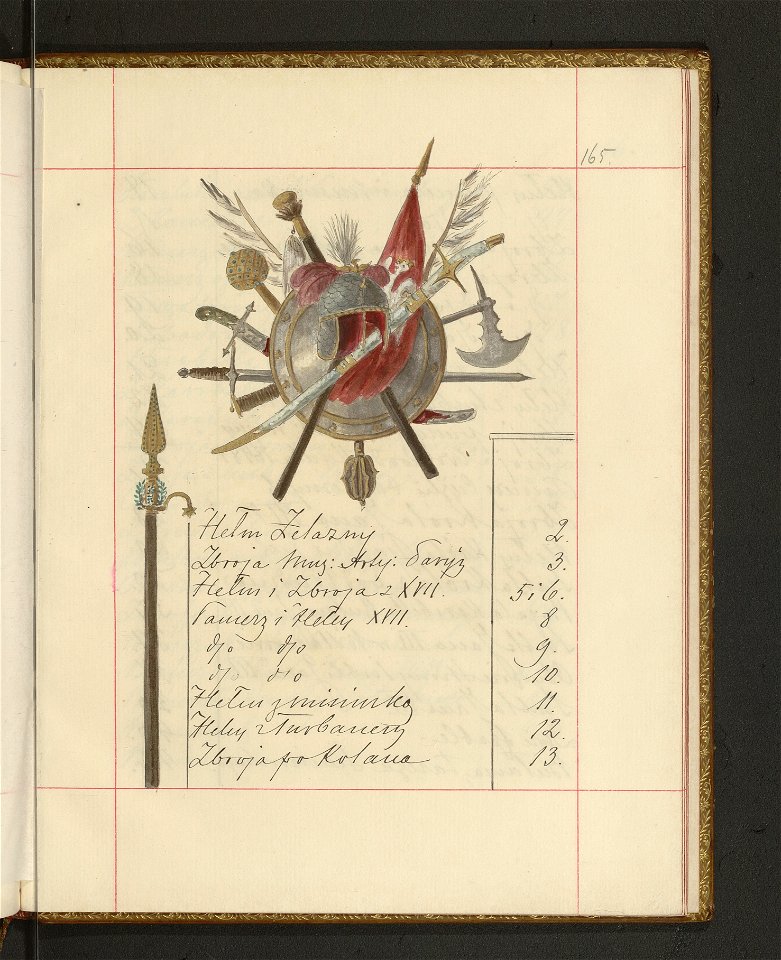 165.
Hełm Żelazny 2.
Zbroja Muz: Arty: Paryż 3.
Hełm i Zbroja z XVII. 5 i 6.
Pancerz i Hełm XVII. 8
d/o d/o 9.
d/o d/o 10.
Hełm z misiurką 11.
Hełm z turbanem 12.
Zbroja po Kolana 13.